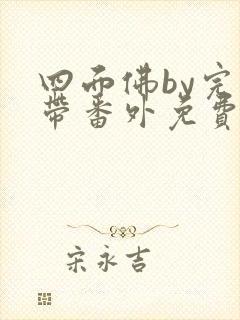 四面佛by完
带番外免費
宋永吉